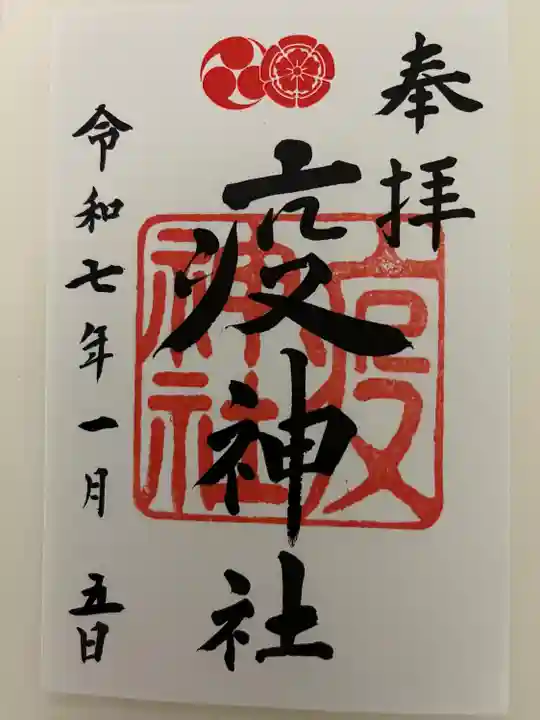 奉拝
疫神社
疫神社
令和七年一月 五日